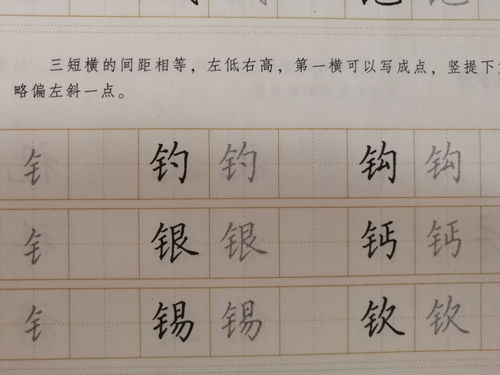 三短横的间距相等，左低右高，第一横可以写成点，竖提下
略偏左斜一点。
钅 钓 钓 钩 钩
钅 银 银 钙 钙
钅 锡 锡 钦 钦